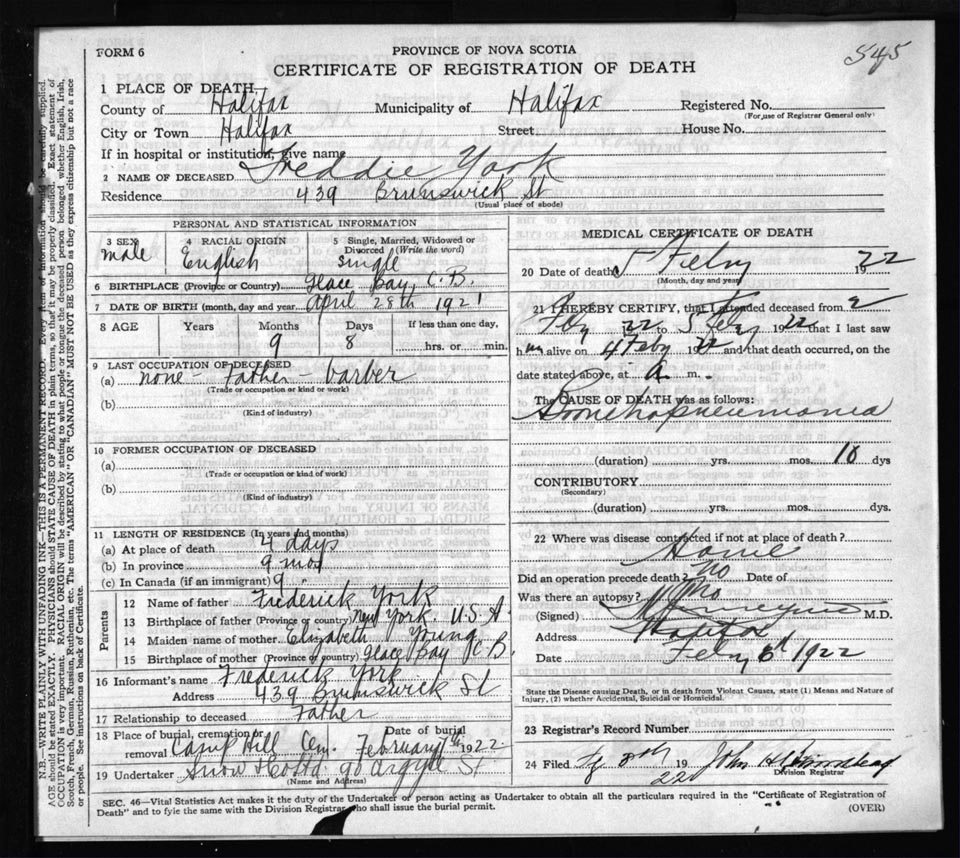 FORM 6
PROVINCE OF NOVA SCOTIA
545
CERTIFICATE OF REGISTRATION OF DEATH
1 PLACE OF DEATH
County of Halifax Municipality of Halifax Registered No.
(For use of Registrar General only)
City or Town Halifax Street House No.
If in hospital or institution, give name
2 NAME OF DECEASED Freddie York
Residence 439 Brunswick St
(Usual place of abode)
PERSONAL AND STATISTICAL INFORMATION
3 SEX 4 RACIAL ORIGIN 5 Single, Married, Widowed or Divorced (Write the word)
male English single
6 BIRTHPLACE (Province or Country) Glace Bay, C.B.
7 DATE OF BIRTH (month, day and year) April 28th 1921
8 AGE Years Months Days If less than one day,
9 8 hrs. or min.
9 LAST OCCUPATION OF DECEASED
(a) none - Father - barber
(Trade or occupation or kind or work)
(b)
(Kind of industry)
10 FORMER OCCUPATION OF DECEASED
(a)
(Trade or occupation or kind of work)
(b)
(Kind of industry)
11 LENGTH OF RESIDENCE (In years and months)
(a) At place of death 4 days
(b) In province 9 mos
(c) In Canada (if an immigrant) 9 "
Parents
12 Name of father Frederick York
13 Birthplace of father (Province or country) New York. U.S.A
14 Maiden name of mother Elizabeth Young
15 Birthplace of mother (Province or country) Glace Bay C.B.
16 Informant's name Frederick York
Address 439 Brunswick St
17 Relationship to deceased Father
18 Place of burial, cremation or removal Camp Hill Cem. Date of burial February 1922
19 Undertaker Snow 90 Argyle St
(Name and Address)
MEDICAL CERTIFICATE OF DEATH
20 Date of death 5 Feby 1922
(Month, day and year)
21 I HEREBY CERTIFY, that I attended deceased from 2
Feby 22 to 5 Feby 1922 that I last saw
him alive on 4 Feby 1922 and that death occurred, on the
date stated above, at a m.
The CAUSE OF DEATH was as follows:
Bronchopneumonia
(duration) yrs. mos. 10 dys
CONTRIBUTORY
(Secondary)
(duration) yrs. mos. dys
22 Where was disease contracted if not at place of death?
Home
Did an operation precede death? no Date of
Was there an autopsy? no
(Signed) M.D.
Address Halifax
Date Feby 6th 1922
State the Disease causing Death, or in death from Violent Causes, state (1) Means and Nature of
Injury, (2) whether Accidental, Suicidal or Homicidal.
23 Registrar's Record Number
24 Filed 19 22 John
Division Registrar
SEC. 46—Vital Statistics Act makes it the duty of the Undertaker or person acting as Undertaker to obtain all the particulars required in the "Certificate of Registration of
Death" and to fyle the same with the Division Registrar who shall issue the burial permit.
(OVER)
N.B.—WRITE PLAINLY WITH UNFADING INK—THIS IS A PERMANENT RECORD. Every item of information should be carefully supplied.
AGE should be stated EXACTLY. PHYSICIANS should STATE CAUSE OF DEATH in plain terms, so that it may be properly classified. Exact statement of
OCCUPATION is very important. RACIAL ORIGIN will be described by stating to what people or tongue the deceased person belonged whether English, Irish,
Scotch, French, German, Russian, Ruthenian, etc. The terms "AMERICAN" OR "CANADIAN" MUST NOT BE USED as they express citizenship but not, a race
or people. See instructions on back of Certificate.